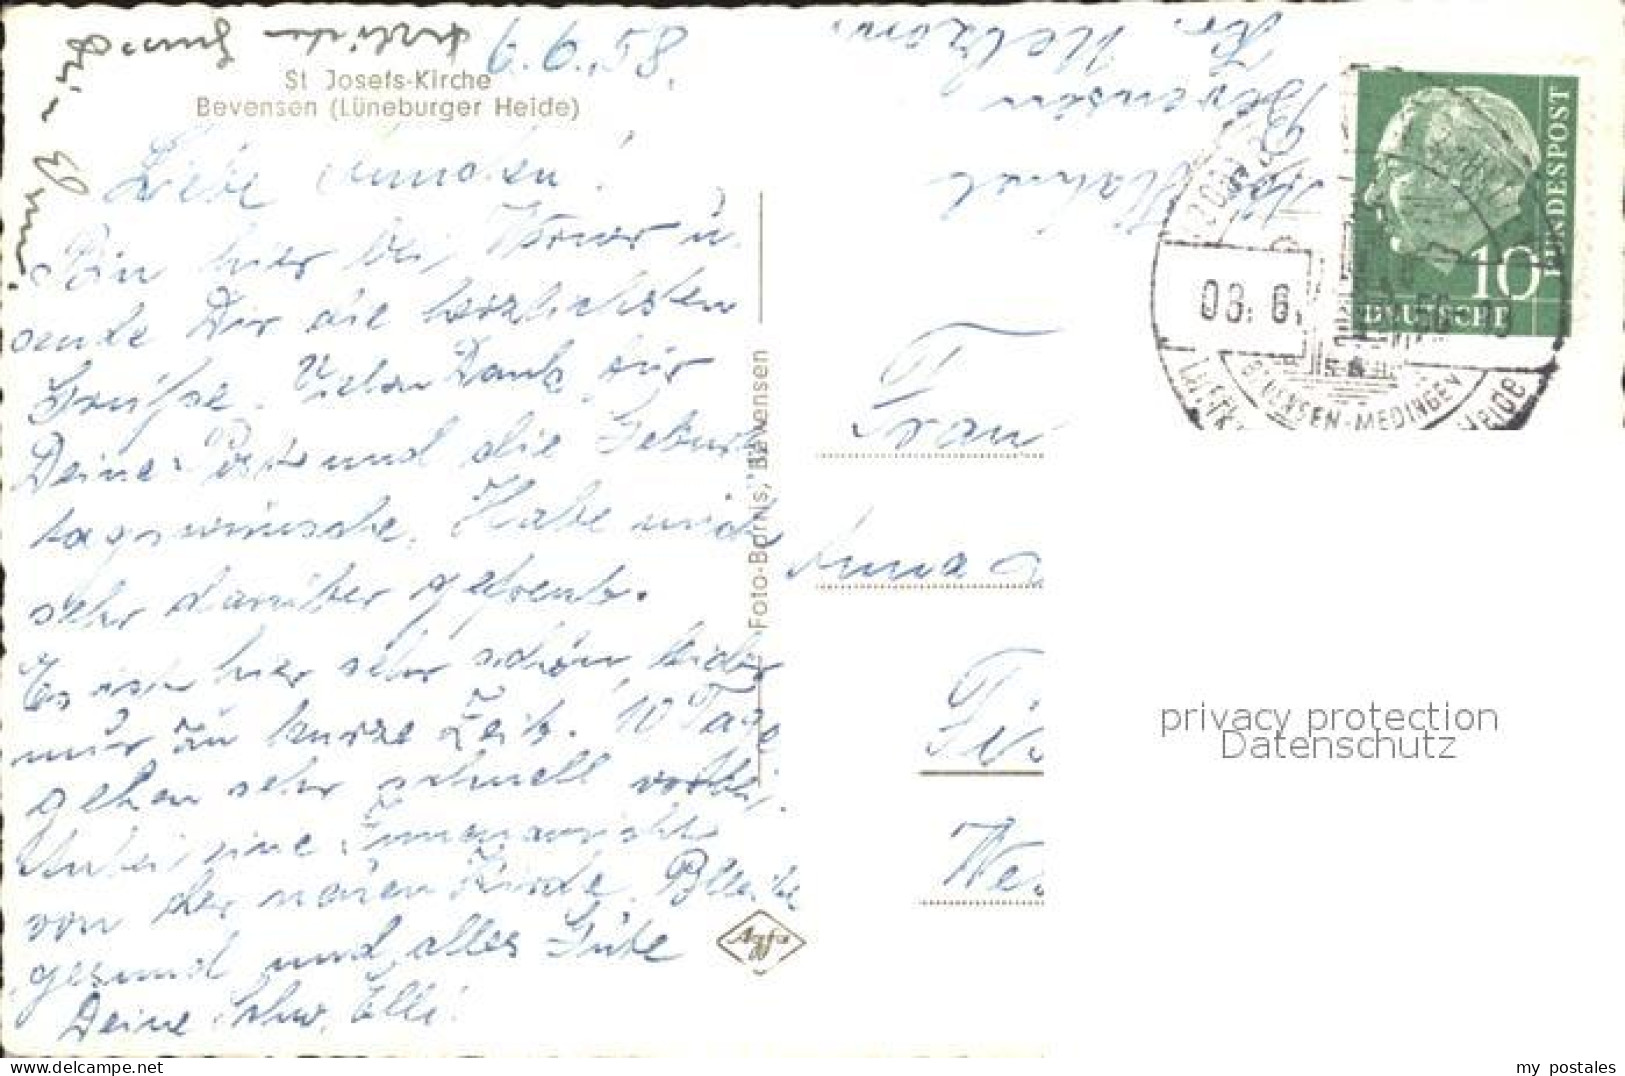 6.9.58.
St Josefs-Kirche
Bevensen (Lüneburger Heide)
Liebe Annchen!
Bin hier bei Werner u.
sende Dir die herzlichsten
Grüße. Vielen Dank für
Deine und die Geburts
tagswünsche. Habe mich
sehr darüber gefreut.
Es ist hier sehr schön, leider
nur zu kurze Zeit. 10 Tage
gehen sehr schnell vorbei.
Anbei eine Innenansicht
von der neuen Kirche. Bleibe
gesund und alles Gute
Deine Schw. Elli!
Foto-Barnis, Bevensen
Agfa
Bevensen
Kr. Uelzen.
DEUTSCHE
BUNDESPOST
10
BEVENSEN-MEDINGEN
HEIDE
Frau
Anna
Wes
privacy protection
Datenschutz
my postales